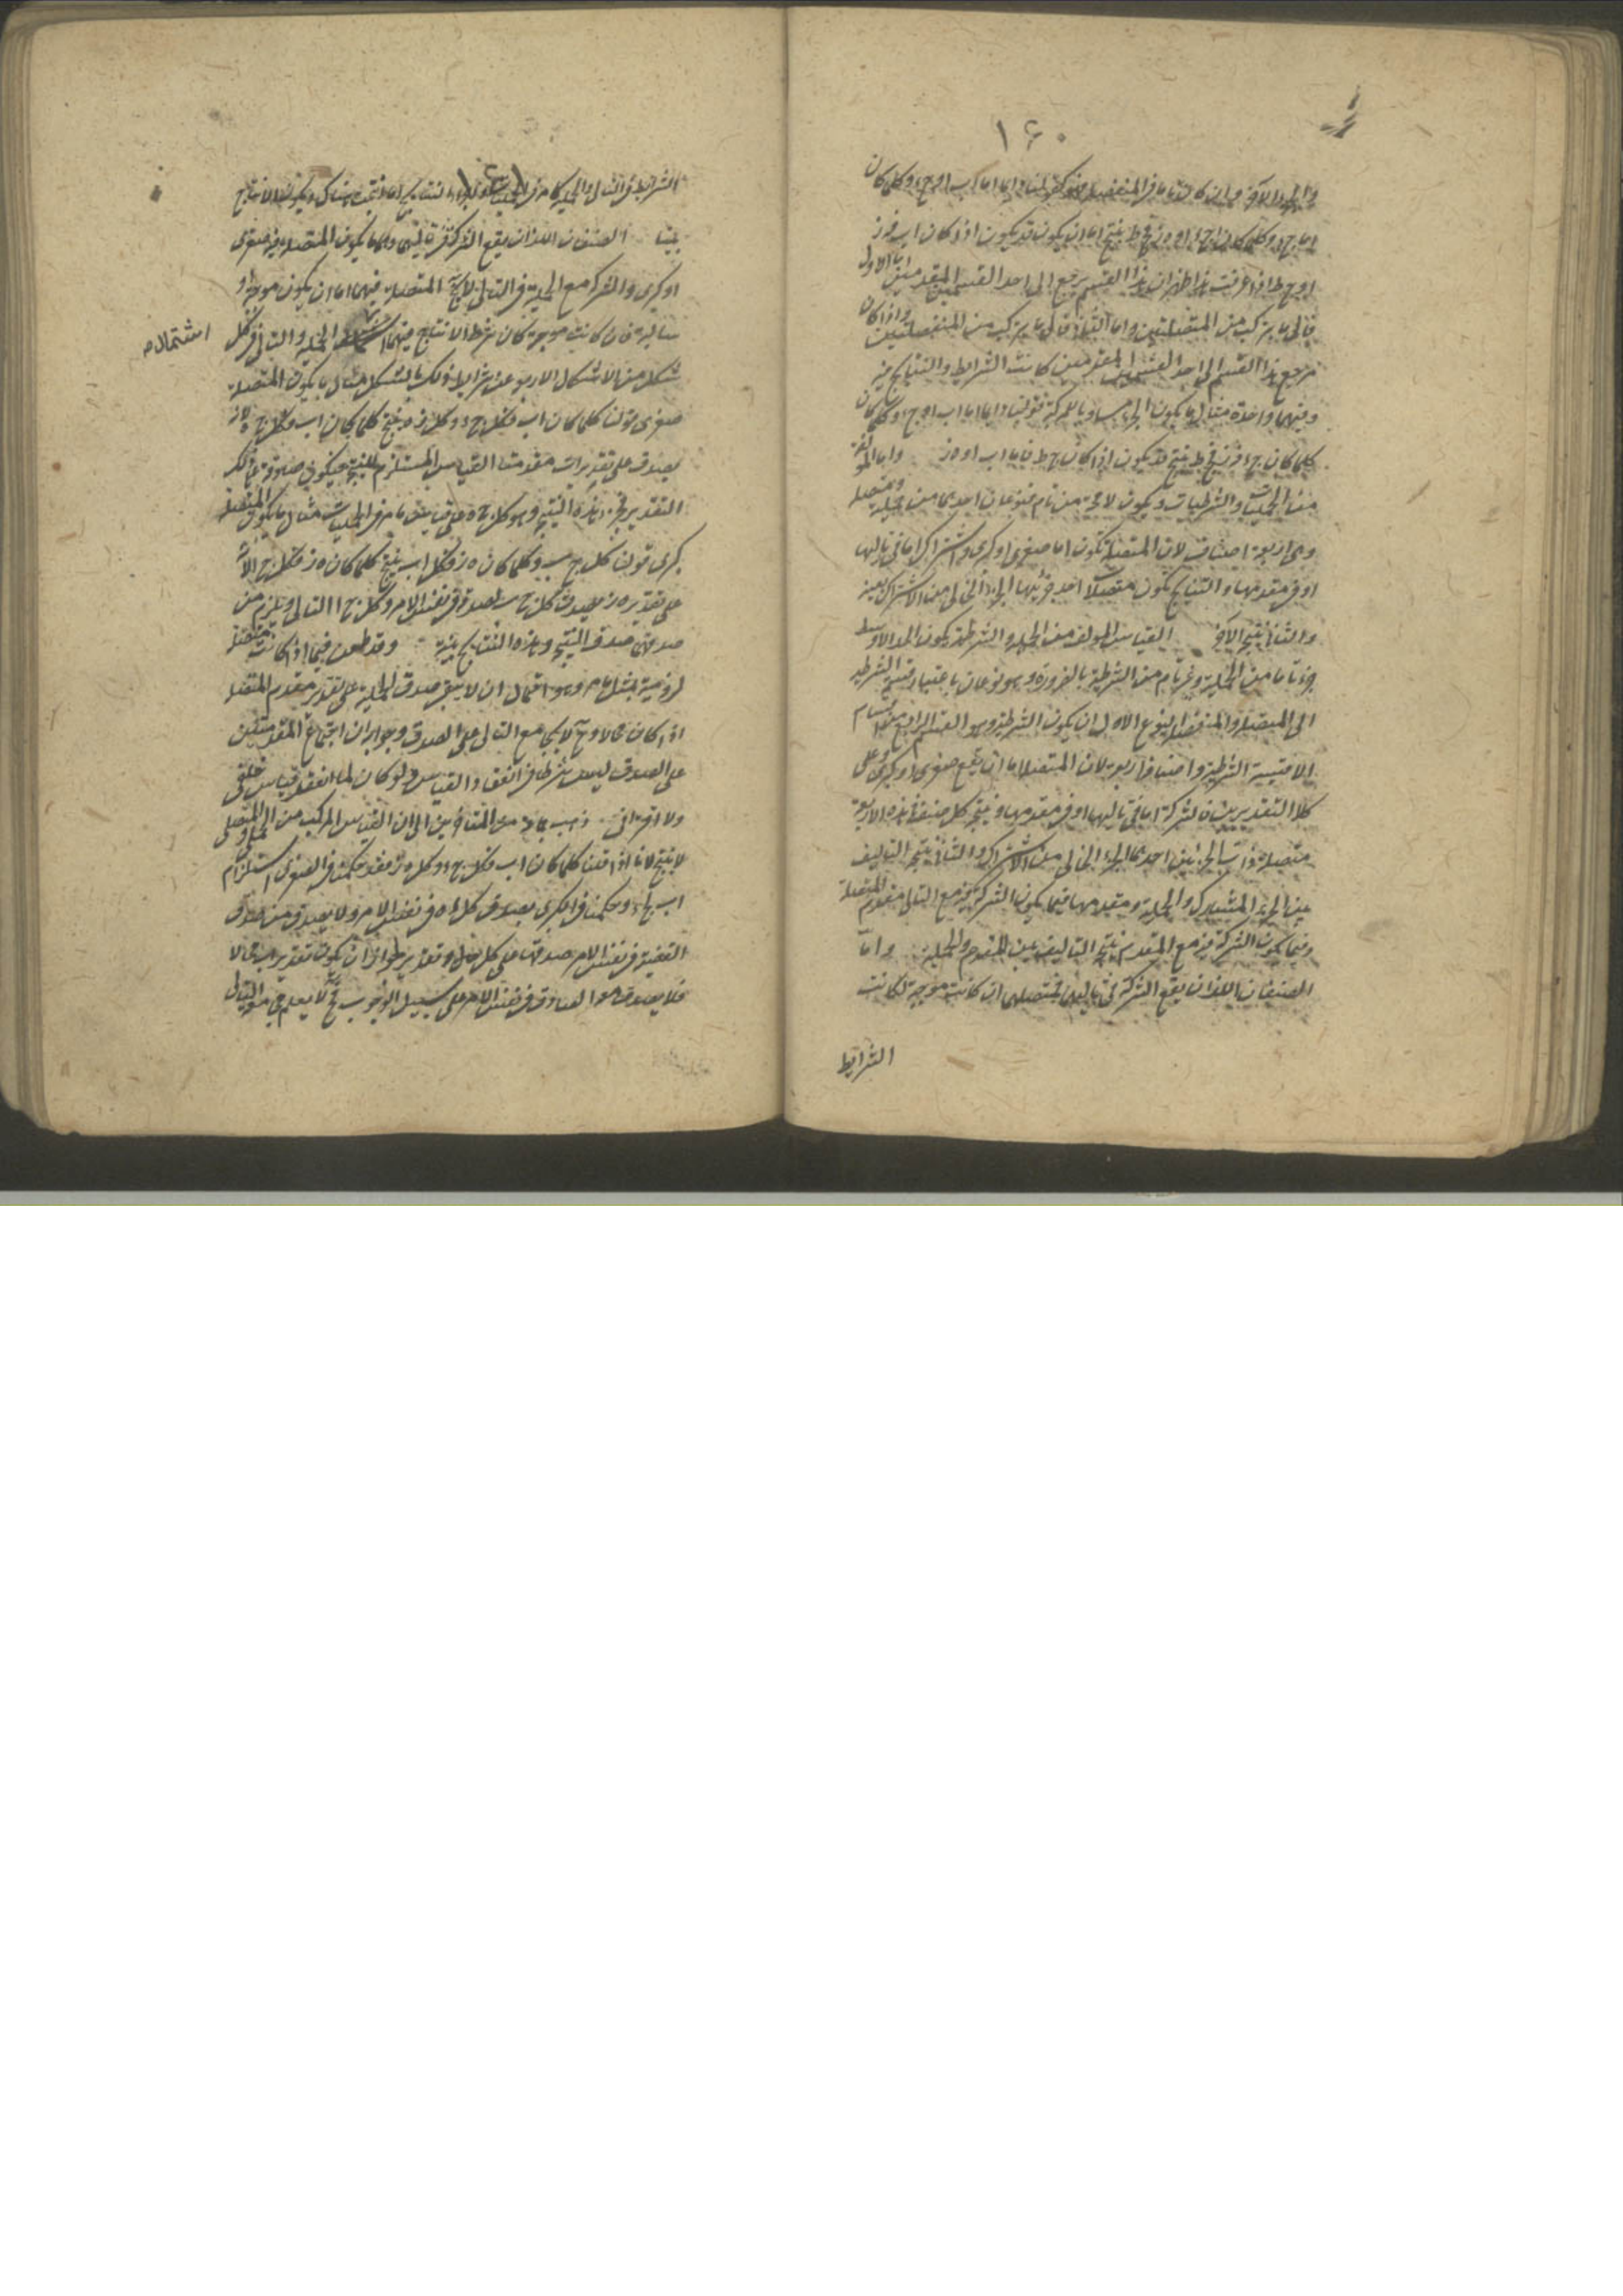 ١٦٠
اما ج ء وكلما كان ج ء او ه ز و ح ط ينتج اما ان يكون قد يكون اذا كان اب فه ز
او ح ط اذا عرفت هذا ظهر ان هذا القسم يرجع الى احد القسمين المتقدمين اما الاول
فالى ما يتركب من المتصلتين واما الثانى فالى ما يتركب من المنفصلتين واذا كان
مرجع هذا القسم الى احد القسمين المتقدمين كانت الشرايط والنتايج فيه
وفيهما واحدة مثال ما يكون الجزء مساويا للحركة قولنا دايما اما اب او ج ء وكلما كان
كلما كان ج ء فه ز ح ط ينتج قد يكون اذا كان ح ط فاما اب او ه ز واما المؤلفة
من الحمليات والشرطيات ويكون لا محة من تام فنوعان احدهما من حملية ومتصلة
وهى اربعة اصناف لان المتصلة تكون اما صغرى او كبرى واشتراكها اما فى تاليها
او فى مقدمها والنتايج تكون متصلات احد جزئيها الجزء الخالى من الاشتراك بعينه
والثانى نتيجة الآخر القياس المؤلف من الحملية والشرطية يكون الحد الاوسط
جزءا تاما من الحملية وغير تام من الشرطية بالضرورة وهو نوعان باعتبار قسمى الشرطية
الى المتصلة والمنفصلة النوع الاول ان يكون الشرطية وهو القسم الرابع من اقسام
الاقيسة الشرطية واصنافه اربعة لان المتصلة اما ان يقع صغرى او كبرى وعلى
كلا التقديرين فالشركة اما فى تاليها او فى مقدمها وينتج كل صنف من هذه الاربعة
متصلة ذات الجزئين احدهما الجزء الخالى من الاشتراك والثانى نتيجة التاليف
بين الجزء المشارك والحملية ومقدمها فيما يكون الشركة فيه مع التالى مقدم المتصلة
وفيما يكون الشركة فيه مع المقدم نتيجة التاليف بين المقدم والحملية واما
الصنفان اللذان يقع الشركة فى تاليهما فمتصلتهما ان كانت موجبة كانت
الشرايط
١٦١
بينا الصنفان اللذان يقع الشركة فى تاليهما وهما ما يكون المتصلة فيه صغرى
او كبرى والشركة مع الحملية فى التالى لا يخ المتصلة فيهما اما ان يكون موجبة او
سالبة فان كانت موجبة كان شرط الانتاج فيهما الحملية والتالى فى كل
اشتماله
شكل من الاشكال الاربعة على شرايط ذلك الشكل مثال ما يكون المتصلة
صغرى قولنا كلما كان اب فكل ج ء وكل ء ه ينتج كلما كان اب فكل ج ه لانه
يصدق على تقدير اب مقدمتا القياس المستلزم للنتيجة فيكون صدوقة على ذلك
التقدير فجزء هذه النتيجة وهو كل ج ه على قياس ما مر فى الحمليات مثال ما يكون المتصلة
كبرى قولنا كل ج ب وكلما كان ه ز فكل اب ينتج كلما كان ه ز فكل ج ا لانه
على تقدير ه ز يصدق كل ج ب لصدقه فى نفس الامر وكل ج ا التالى ويلزم من
صدقهما صدق النتيجة وهذه النتايج بينة وقد طعن فيما اذا كانت متصلة
لزومية بمثل ما مر وهو احتمال ان لا يبقى صدق الحملية على تقدير مقدم المتصلة
اذا كان محالا وح لا يجتمع مع التالى على الصدق وجوابه ان اجتماع المقدمتين
على الصدق ليس شرطا فى انعقاد القياس ولو كان لما انعقد قياس خلفى
ولا اقترانى ذهب جمع من المتاخرين الى ان القياس المركب من الحملى والمتصلى
لا ينتج لانا اذا قلنا كلما كان اب فكل ج ء وكل ء ه فقد حكمنا فى الصغرى استلزام
اب ج ء وحكمنا فى الكبرى بصدق كل ء ه فى نفس الامر ولا يصدق من صدق
القضية فى نفس الامر صدقها على كل حال وتقدير لجواز ان يكون تقدير اب محالا
فلا يصدق هو الصادق فى نفس الامر على سبيل الوجوب فح لا يعلم مع التالى